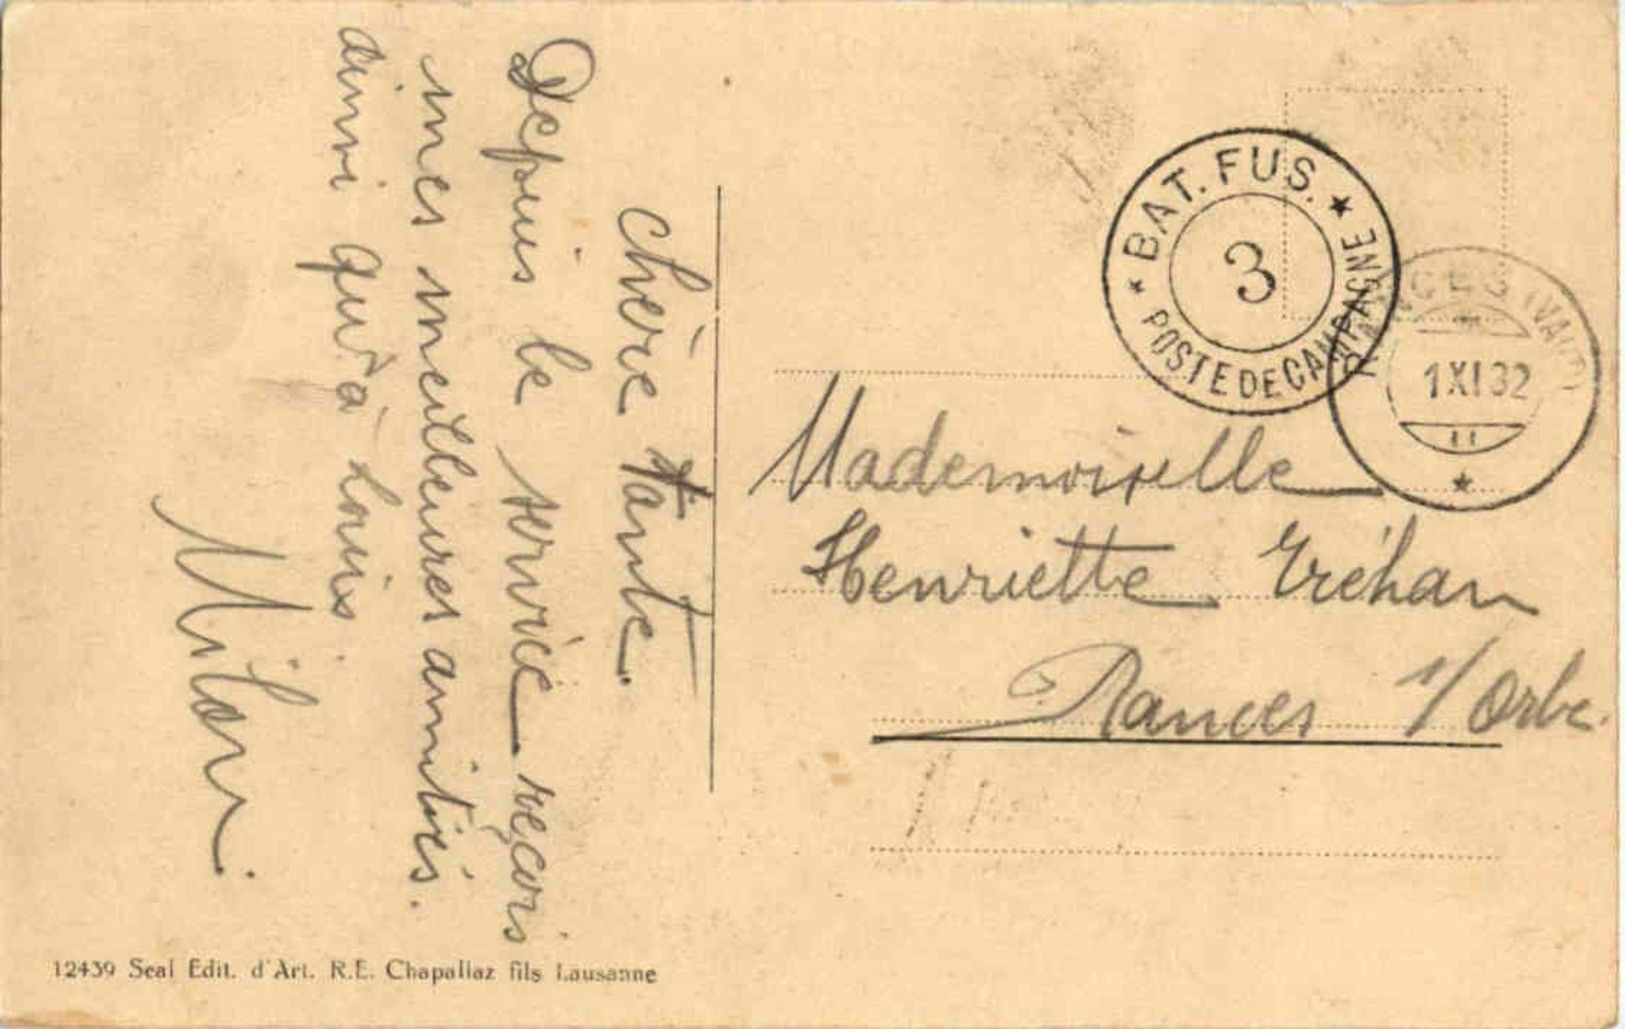 Chère tante.
Depuis le service reçois
mes meilleures amitiés.
ainsi qu'à Louis.
BAT. FUS.
3
POSTE DE CAMPAGNE
RANCES (VAUD)
1 XI 32
11
Mademoiselle
Henriette Tréhan
Rances s/ Orbe.
12439 Seal Edit. d'Art. R.E. Chapallaz fils Lausanne